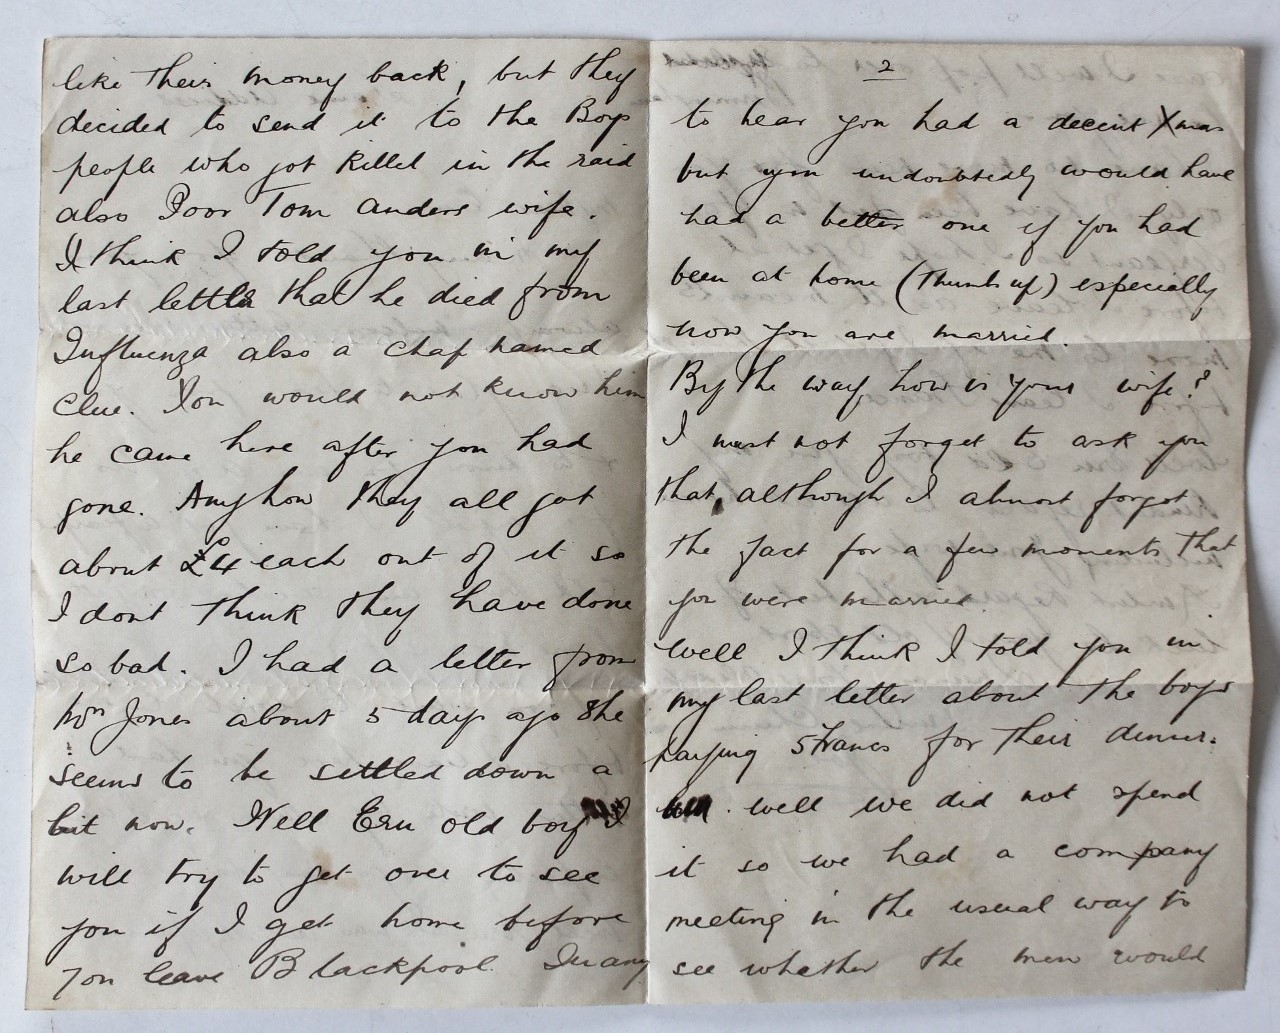 2
to hear you had a decent Xmas
but you undoubtedly would have
had a better one if you had
been at home (Thumbs up) especially
now you are married.
By the way, how is your wife?
I must not forget to ask you
that, although I almost forgot
the fact for a few moments that
you were married.
well I think I told you in
my last letter about the boys
paying 5 Francs for their dinner.
well we did not spend
it so we had a company
meeting in the usual way to
see whether the men would
like their money back, but they
decided to send it to the Boys
people who got killed in the raid
also Poor Tom Anders wife.
I think I told you in my
last letter that he died from
Influenza also a chap named
Clue. You would not know him
he came here after you had
gone. Anyhow they all got
about £4 each out of it so
I dont think they have done
so bad. I had a letter from
Mrs Jones about 5 days ago she
seems to be settled down a
bit now. Well Ern old boy I
will try to get over to see
you if I get home before
you leave Blackpool. In any